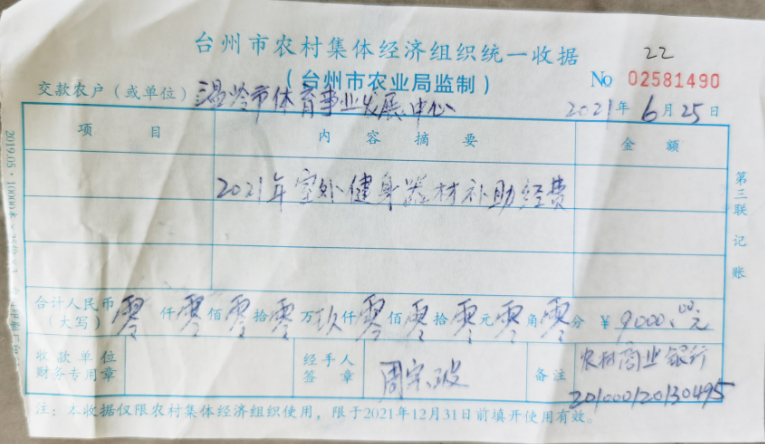 22
台州市农村集体经济组织统一收据
（台州市农业局监制）
No 02581490
交款农户（或单位）温岭市体育事业发展中心
2021年6月25日
项目 内容摘要 金额
2021年室外健身器材补助经费
合计人民币（大写）零仟零佰零拾零万玖仟零佰零拾零元零角零分 ￥9000.00元
收款单位财务专用章 经手人签章 周宗波 备注 农村商业银行
201000120130495
注：本收据仅限农村集体经济组织使用，限于2021年12月31日前填开使用有效。
第三联 记账
2019.05